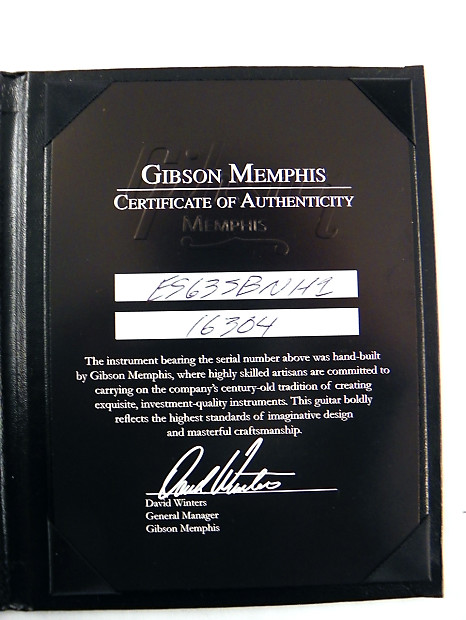 Gibson
MEMPHIS
GIBSON MEMPHIS
CERTIFICATE OF AUTHENTICITY
ES633BNH1
16304
The instrument bearing the serial number above was hand-built
by Gibson Memphis, where highly skilled artisans are committed to
carrying on the company's century-old tradition of creating
exquisite, investment-quality instruments. This guitar boldly
reflects the highest standards of imaginative design
and masterful craftsmanship.
David Winters
David Winters
General Manager
Gibson Memphis